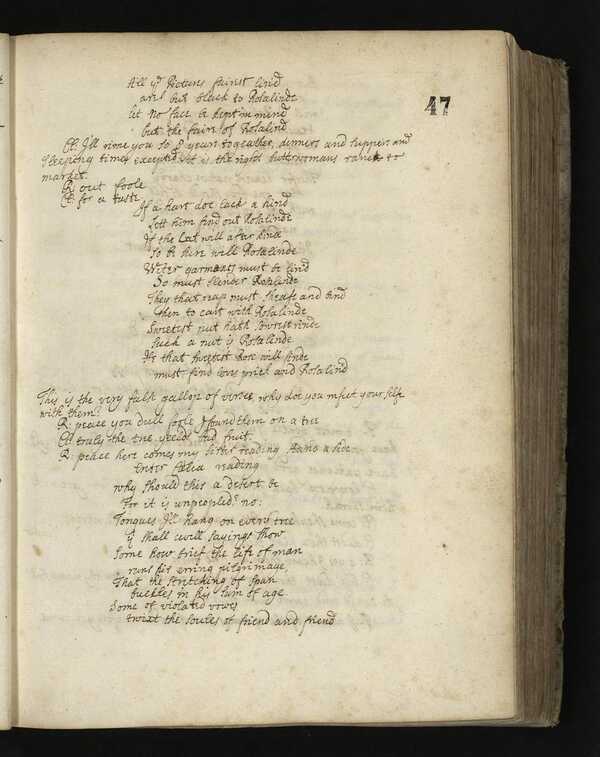 47
All ye Pictures fairest lin'd
are but black to Rosalinde
let no face be kept in mind
but the faire of Rosalind
Cl: I'll rime you so 8 years together, dinners and suppers and
sleeping times excepted: it is the right butterwomans ranck to
market.
R: out foole
Cl: for a tast:
If a hart doe lack a hind
Lett him find out Rosalinde
If the Catt will after kind
So be sure will Rosalinde
Winter garments must be lin'd
So must slender Rosalinde
They that reap must sheafe and bind
then to cart with Rosalinde
Sweetest nut hath sowrest rinde
Such a nut is Rosalinde
He that sweetest Rose will finde
must find loves prick and Rosalind
This is the very false gallop of verses, why doe you infect your selfe
with them?
R: peace you dull foole I found them on a tree
Cl: truly the tree yeelds bad fruit.
R: peace here comes my sister reading stand aside
Enter Celia reading
why should this a desert be
For it is unpeopled? no:
Tongues I'll hang on every tree
yt shall civill sayings show
Some how brief the life of man
runs his erring pilgrimage,
That the stretching of span
buckles in his sum of age
Some of violated vowes
twixt the soules of friend and friend